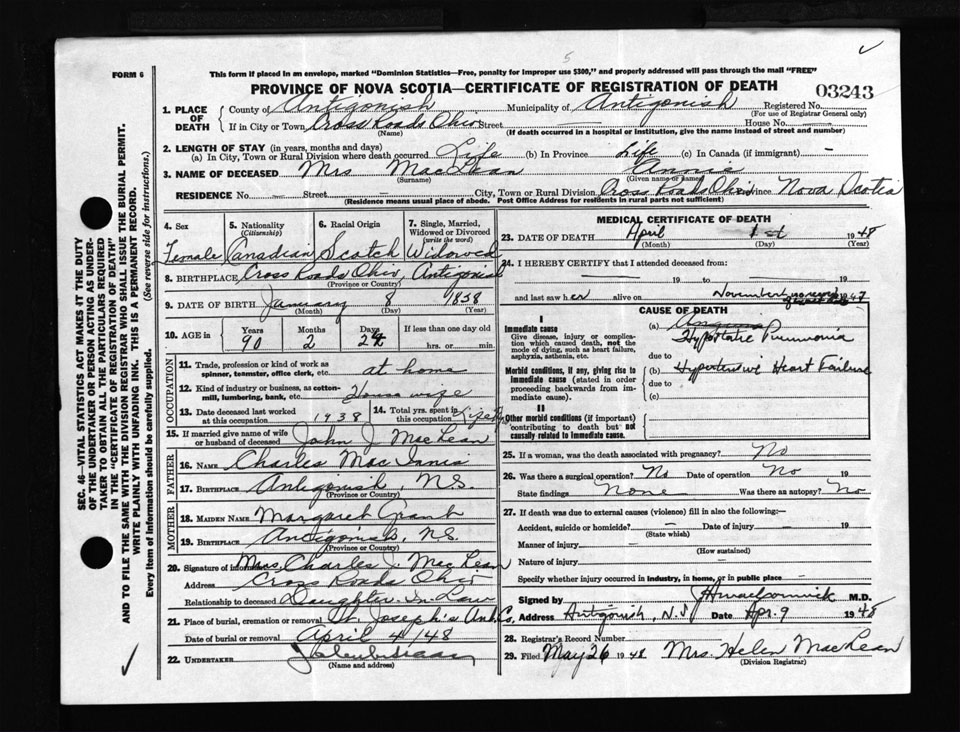 5
FORM 6
This form if placed in an envelope, marked "Dominion Statistics—Free, penalty for improper use $300," and properly addressed will pass through the mail "FREE"
PROVINCE OF NOVA SCOTIA—CERTIFICATE OF REGISTRATION OF DEATH
03243
1. PLACE OF DEATH
County of Antigonish Municipality of Antigonish Registered No.
(For use of Registrar General only)
If in City or Town Cross Roads Ohio Street House No. —
(Name) (If death occurred in a hospital or institution, give the name instead of street and number)
2. LENGTH OF STAY (in years, months and days)
(a) In City, Town or Rural Division where death occurred Life (b) In Province Life (c) In Canada (if immigrant) —
3. NAME OF DECEASED Mrs MacLean Annie
(Surname) (Given name or names)
RESIDENCE No. — Street — City, Town or Rural Division Cross Roads Ohio Province Nova Scotia
(Residence means usual place of abode. Post Office Address for residents in rural parts not sufficient)
4. Sex 5. Nationality (Citizenship) 6. Racial Origin 7. Single, Married, Widowed or Divorced (write the word)
Female Canadian Scotch Widowed
8. BIRTHPLACE Cross Roads Ohio, Antigonish
(Province or Country)
9. DATE OF BIRTH January 8 1858
(Month) (Day) (Year)
10. AGE in Years Months Days If less than one day
90 2 24 hrs. or min.
OCCUPATION
11. Trade, profession or kind of work as spinner, teamster, office clerk, etc. at home
12. Kind of industry or business, as cotton-mill, lumbering, bank, etc. House wife
13. Date deceased last worked at this occupation 1938 14. Total yrs. spent in this occupation
15. If married give name of wife or husband of deceased John J MacLean
FATHER
16. NAME Charles Mac Innis
17. BIRTHPLACE Antigonish, N.S.
(Province or Country)
MOTHER
18. MAIDEN NAME Margaret Grant
19. BIRTHPLACE Antigonish, N.S.
(Province or Country)
20. Signature of informant Mrs. Charles J. MacLean
Address Cross Roads Ohio
Relationship to deceased Daughter-In-Law
21. Place of burial, cremation or removal St. Joseph's Ant. Co.
Date of burial or removal April 4/48
22. UNDERTAKER
(Name and address)
MEDICAL CERTIFICATE OF DEATH
23. DATE OF DEATH April 1st 1948
(Month) (Day) (Year)
24. I HEREBY CERTIFY that I attended deceased from:
— 19 to — 19
and last saw her alive on November 1947
CAUSE OF DEATH
I
Immediate cause
Give disease, injury or complication which caused death, not the mode of dying, such as heart failure, asphyxia, asthenia, etc.
(a) Hypostatic Pneumonia
due to
Morbid conditions, if any, giving rise to immediate cause (stated in order proceeding backwards from immediate cause).
(b) Hypertensive Heart Failure
due to
(c)
II
Other morbid conditions (if important) contributing to death but not causally related to immediate cause.
25. If a woman, was the death associated with pregnancy? No
26. Was there a surgical operation? No Date of operation No 19
State findings None Was there an autopsy? No
27. If death was due to external causes (violence) fill in also the following:—
Accident, suicide or homicide? — Date of injury — 19
(State which)
Manner of injury —
(How sustained)
Nature of injury —
Specify whether injury occurred in industry, in home, or in public place —
Signed by M.D.
Address Antigonish, N.S. Date Apr. 9 1948
28. Registrar's Record Number
29. Filed May 26 1948 Mrs. Helen MacLean
(Division Registrar)
SEC. 46—VITAL STATISTICS ACT MAKES IT THE DUTY
OF THE UNDERTAKER OR PERSON ACTING AS UNDER-
TAKER TO OBTAIN ALL THE PARTICULARS REQUIRED
IN THE "CERTIFICATE OF REGISTRATION OF DEATH"
AND TO FILE THE SAME WITH THE DIVISION REGISTRAR WHO SHALL ISSUE THE BURIAL PERMIT.
WRITE PLAINLY WITH UNFADING INK. THIS IS A PERMANENT RECORD.
Every item of information should be carefully supplied. (See reverse side for instructions.)